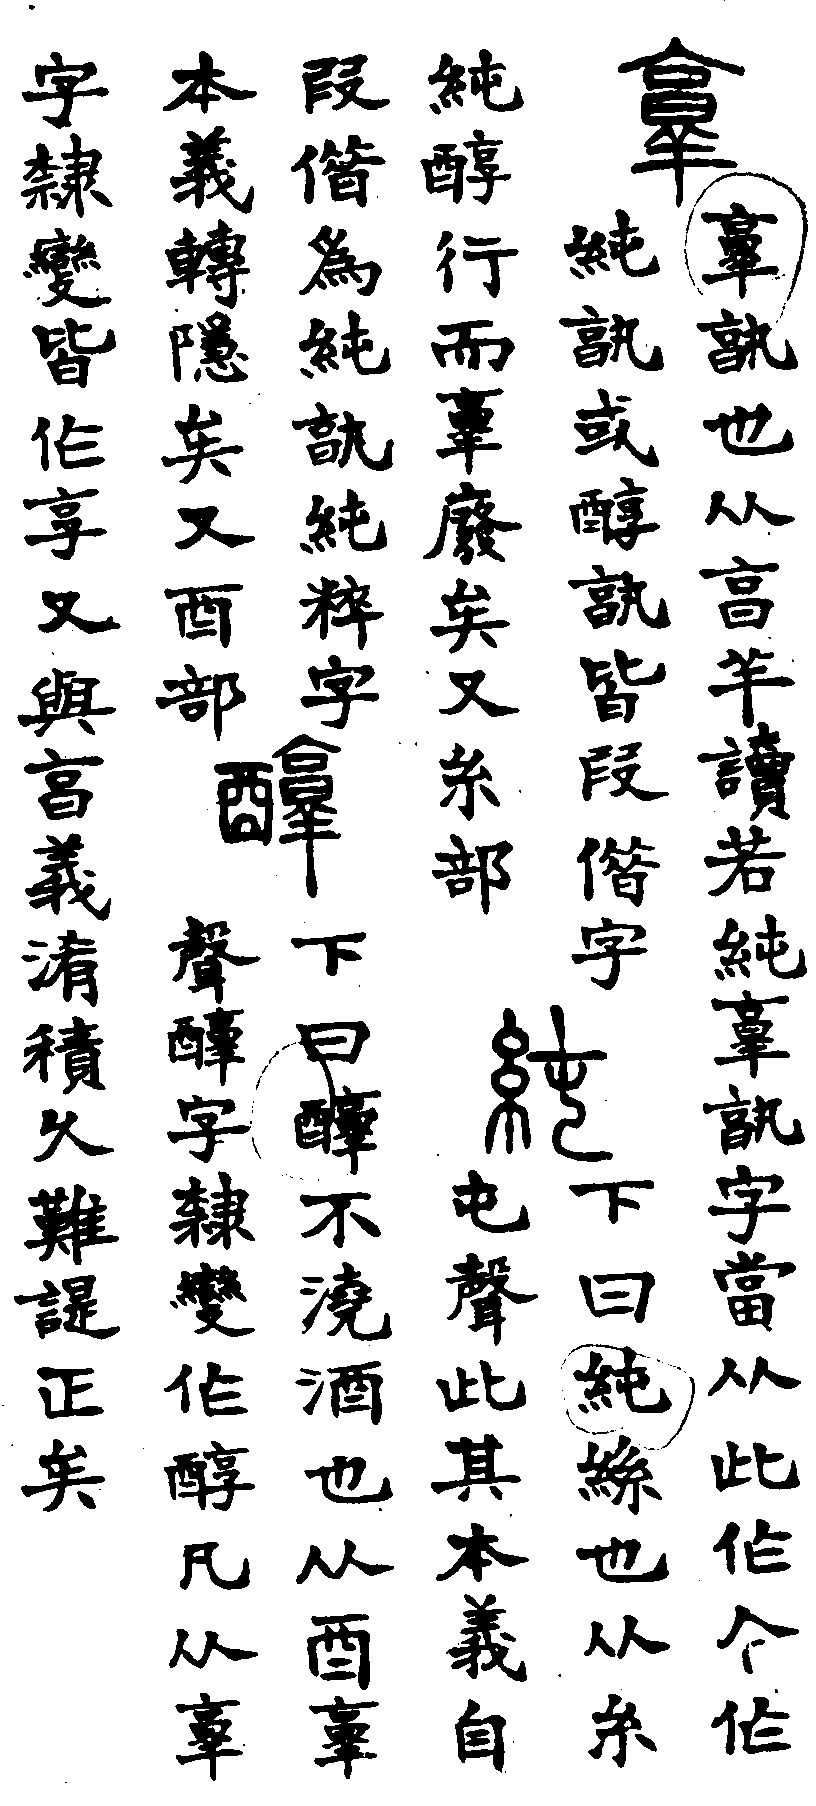 𦎫
𦎫孰也从亯羊讀若純𦎫孰字當从此作今作
純孰或醇孰皆叚偕字
純醇行而𦎫廢矣又糸部
純
下曰純絲也从糸
屯聲此其本義自
叚偕為純孰純粹字
本義轉隱矣又酉部
𨣌
下曰𨣌不澆酒也从酉𦎫
聲𨣌字隸變作醇凡从𦎫
字隸變皆作享又與亯義淆積久難諟正矣